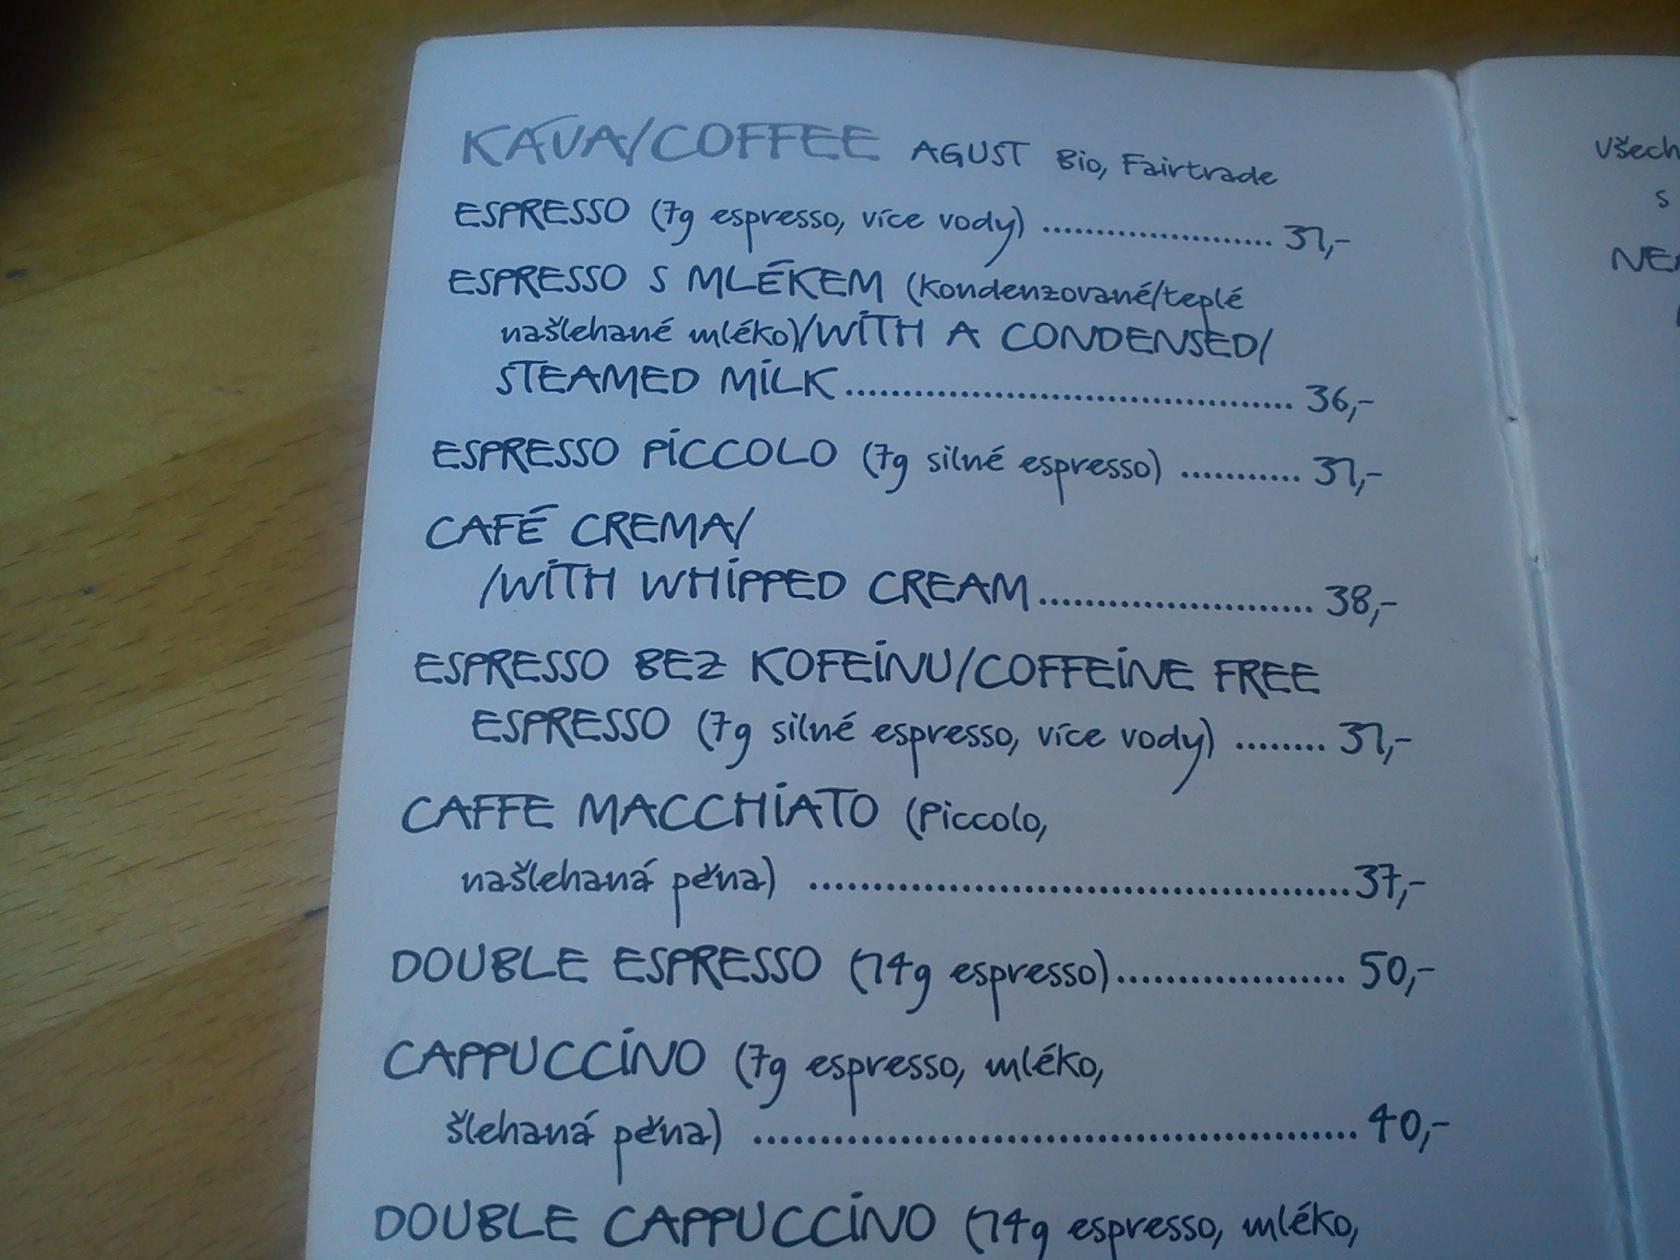 KÁVA/COFFEE AGUST Bio, Fairtrade
ESPRESSO (7g espresso, více vody) ...................... 31,-
ESPRESSO S MLÉKEM (kondenzované/teplé
našlehané mléko)/WITH A CONDENSED/
STEAMED MILK ........................................ 36,-
ESPRESSO PICCOLO (7g silné espresso) ........... 31,-
CAFÉ CREMA/
/WITH WHIPPED CREAM ........................ 38,-
ESPRESSO BEZ KOFEINU/COFFEINE FREE
ESPRESSO (7g silné espresso, více vody) ........ 31,-
CAFFE MACCHIATO (Piccolo,
našlehaná pěna) .................................................. 37,-
DOUBLE ESPRESSO (14g espresso) .................... 50,-
CAPPUCCINO (7g espresso, mléko,
šlehaná pěna) ....................................................... 40,-
DOUBLE CAPPUCCINO (14g espresso, mléko,
všech
s